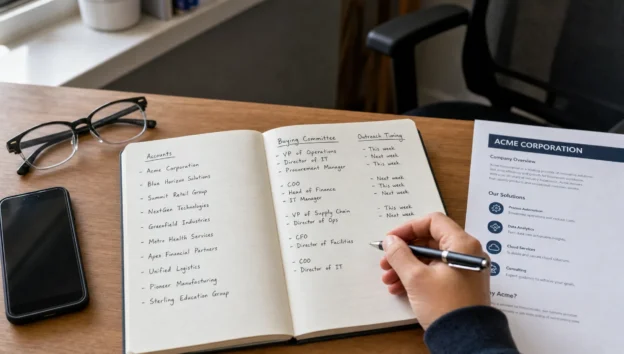 Accounts
- Acme Corporation
- Blue Horizon Solutions
- Summit Retail Group
- NextGen Technologies
- Greenfield Industries
- Metro Health Services
- Apex Financial Partners
- Unified Logistics
- Pioneer Manufacturing
- Sterling Education Group
Buying Committee
- VP of Operations
- Director of IT
- Procurement Manager
- COO
- Head of Finance
- IT Manager
- VP of Supply Chain
- Director of Ops
- CFO
- Director of Facilities
- COO
- Director of IT
Outreach Timing
- This week
- Next week
- This week
- Next week
- This week
- Next week
- This week
- Next week
ACME CORPORATION
Company Overview
Our Solutions
Data Analytics
Cloud Services
Consulting
Acme?